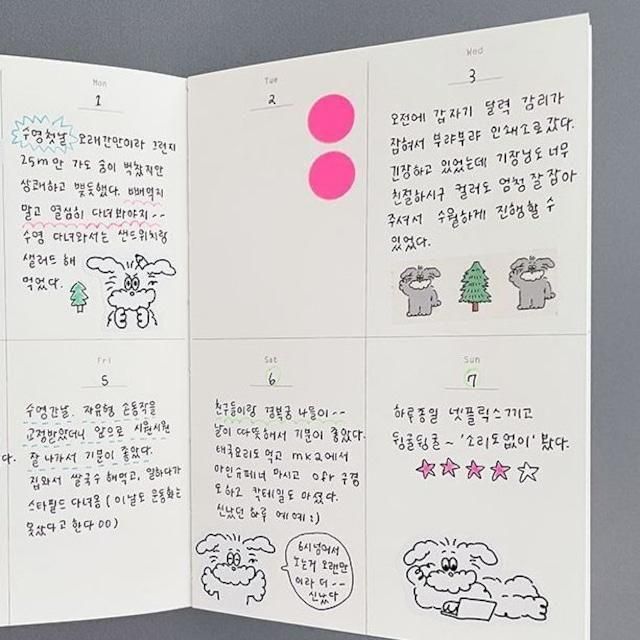 Mon
1
수영첫날 오래간만이라 그런지
25m만 가도 숨이 벅찼지만
상쾌하고 뿌듯했다. 빼먹지
말고 열심히 다녀봐야지--
수영 다녀와서는 샌드위치랑
샐러드 해
먹었다.
Tue
2
Wed
3
오전에 갑자기 달력 감리가
잡혀서 부랴부랴 인쇄소로 갔다.
긴장하고 있었는데 기장님도 너무
친절하시구 컬러도 엄청 잘 잡아
주셔서 수월하게 진행할 수
있었다.
다.
Fri
5
수영간날. 자유형 손동작을
교정받았더니 앞으로 시원시원
잘 나가서 기분이 좋았다.
집와서 쌀국수 해먹고, 일하다가
스타필드 다녀옴 (이날도 운동화는
못샀다고 한다 00)
Sat
6
친구들이랑 경복궁 나들이--
날이 따뜻해서 기분이 좋았다.
태국요리도 먹고 mk2에서
아인슈페너 마시고 ofr 구경
도 하고 칵테일도 마셨다.
신났던 하루 예예 :)
6시 넘어서
노는거 오랜만
이라 더 --
신났다
Sun
7
하루종일 넷플릭스키고
뒹굴뒹굴~ '소리도없이' 봤다.